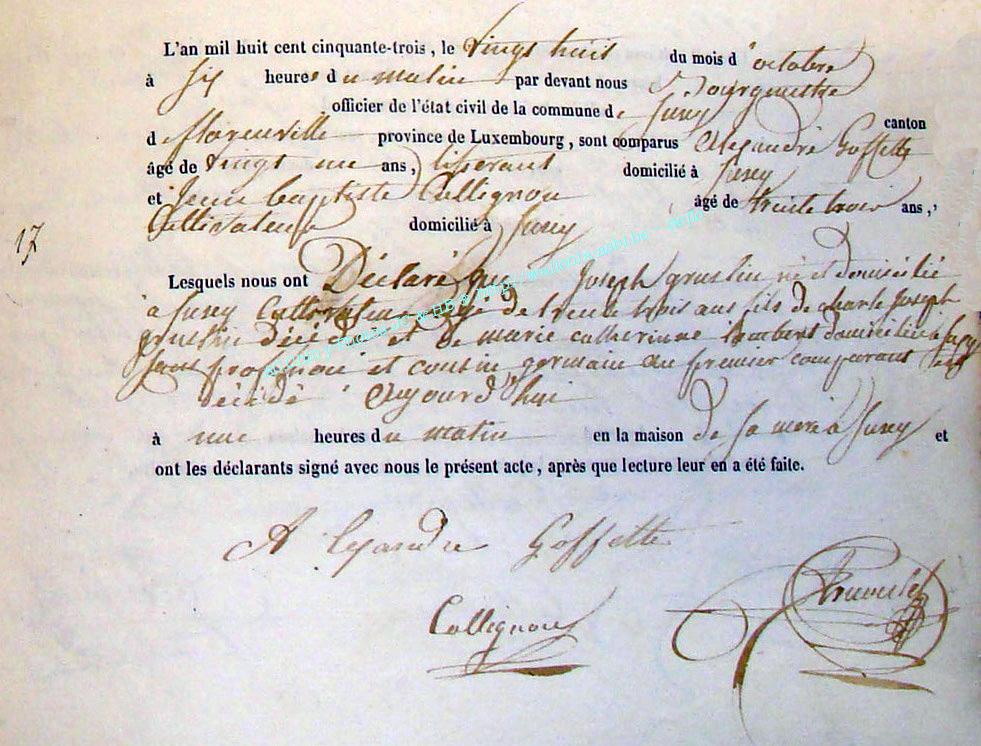 L'an mil huit cent cinquante-trois, le vingt huit du mois d'octobre
à six heures du matin par devant nous Bourguemestre
officier de l'état civil de la commune de Suxy canton
d florenville province de Luxembourg, sont comparus Alexandre Goffette
âgé de vingt un ans, domicilié à Suxy
et Jean baptiste Collignon âgé de trente trois ans,
Cultivateur domicilié à Suxy
17
Lesquels nous ont Déclaré que Joseph gruslin né et domicilié
à Suxy Cultivateur agé de trente trois ans fils de charle Joseph
gruslin décédé et de marie catherinne Lambert domiciliée à Suxy
sans profession et cousin germain au premier comparant est
décédé aujourd'hui
à une heures du matin en la maison de sa mere à Suxy et
ont les déclarants signé avec nous le présent acte, après que lecture leur en a été faite.
Alexandre Goffette
Collignon